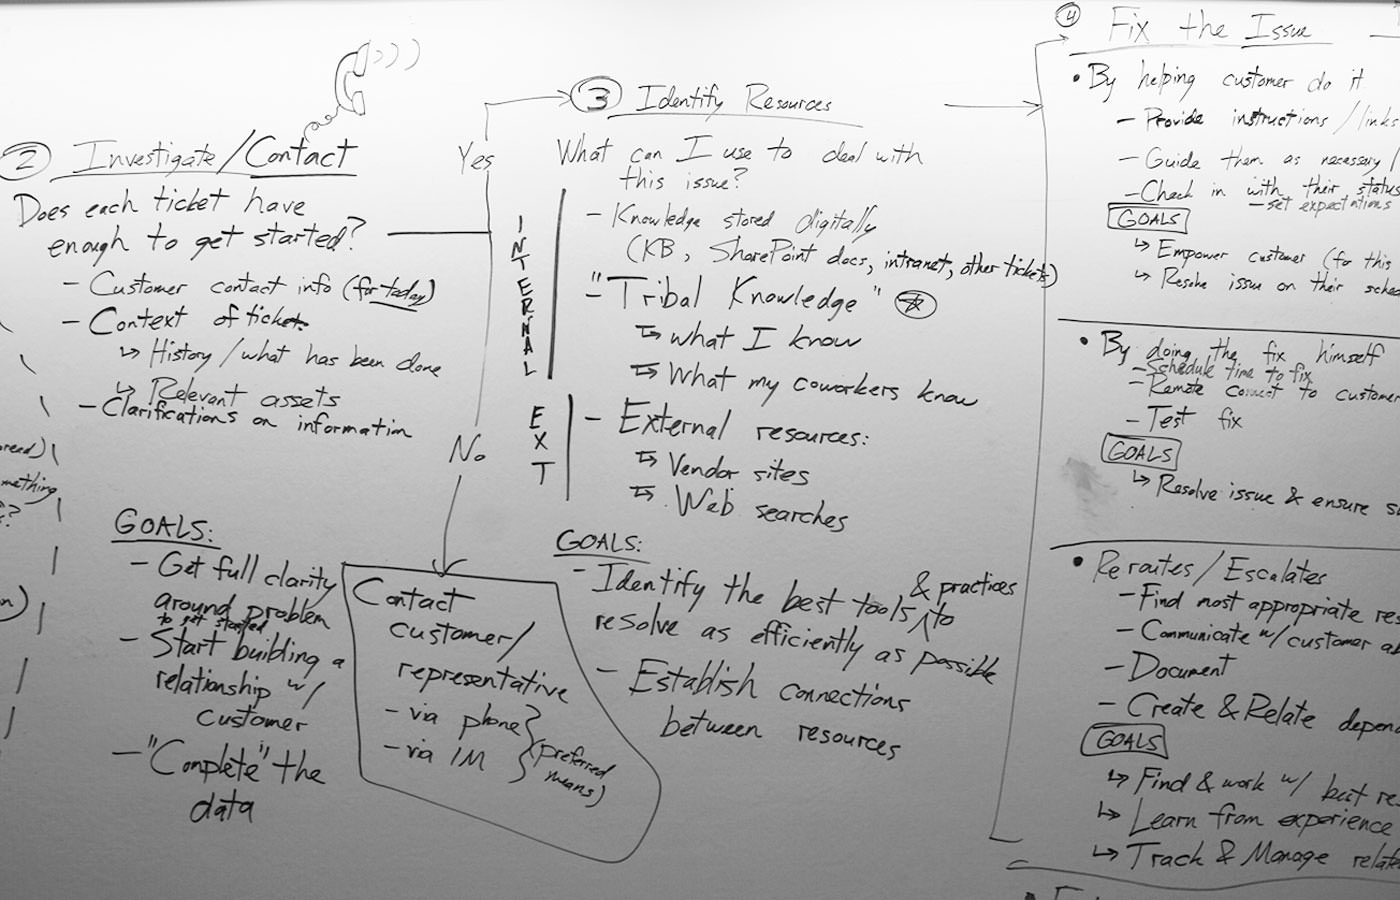 2 Investigate/Contact
Does each ticket have
enough to get started?
- Customer contact info (for today)
- Context of ticket
↳ History/what has been done
↳ Relevant assets
- Clarifications on information
GOALS:
- Get full clarity
around problem
to get started
- Start building a
relationship w/
customer
- "Complete" the
data
Yes
No
Contact
customer/
representative
- via phone
- via IM
(preferred
means)
3 Identify Resources
What can I use to deal with
this issue?
INTERNAL
- Knowledge stored digitally
(KB, SharePoint docs, intranet, other tickets)
- "Tribal Knowledge"
↳ what I know
↳ What my coworkers know
EXT
- External resources:
↳ Vendor sites
↳ Web searches
GOALS:
- Identify the best tools & practices to
resolve as efficiently as possible
- Establish connections
between resources
4 Fix the Issue
• By helping customer do it
- Provide instructions/links
- Guide them as necessary/
- Check in with their status
- set expectations
GOALS
↳ Empower customer (for this
↳ Resolve issue on their sched
• By doing the fix himself
- Schedule time to fix
- Remote connect to customer
- Test fix
GOALS
↳ Resolve issue & ensure
• Reroutes/Escalates
- Find most appropriate res
- Communicate w/customer ab
- Document
- Create & Relate depend
GOALS
↳ Find & work w/ best re
↳ Learn from experience
↳ Track & Manage relate